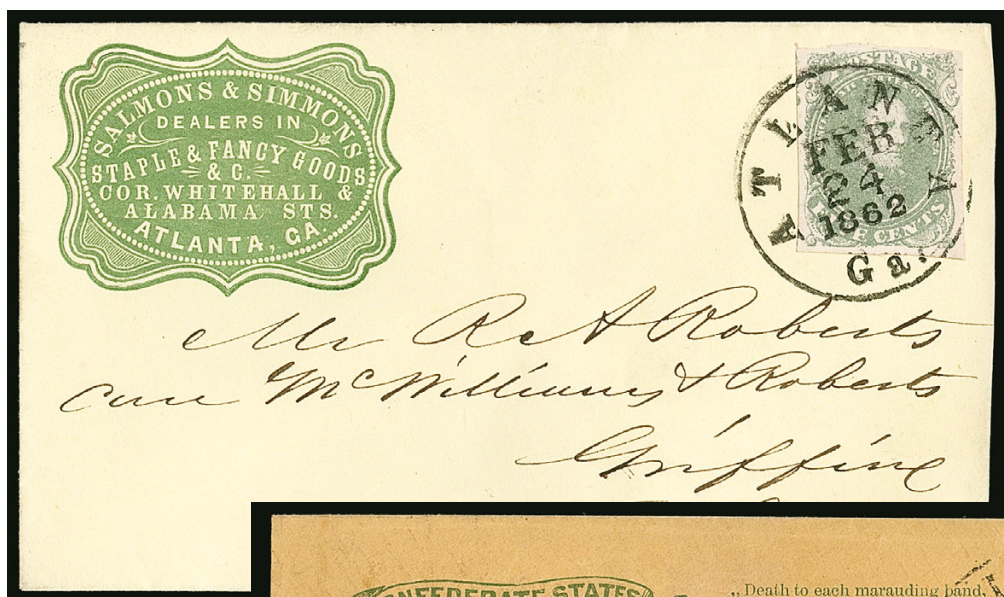 SALMONS & SIMMONS
DEALERS IN
STAPLE & FANCY GOODS
& C.
COR. WHITEHALL &
ALABAMA STS.
ATLANTA, GA.
POSTAGE
ATLANTA
FEB
24
1862
Ga.
CENTS
Mr R A Roberts
care McWilliams & Roberts
Griffin
CONFEDERATE STATES
„Death to each marauding band,